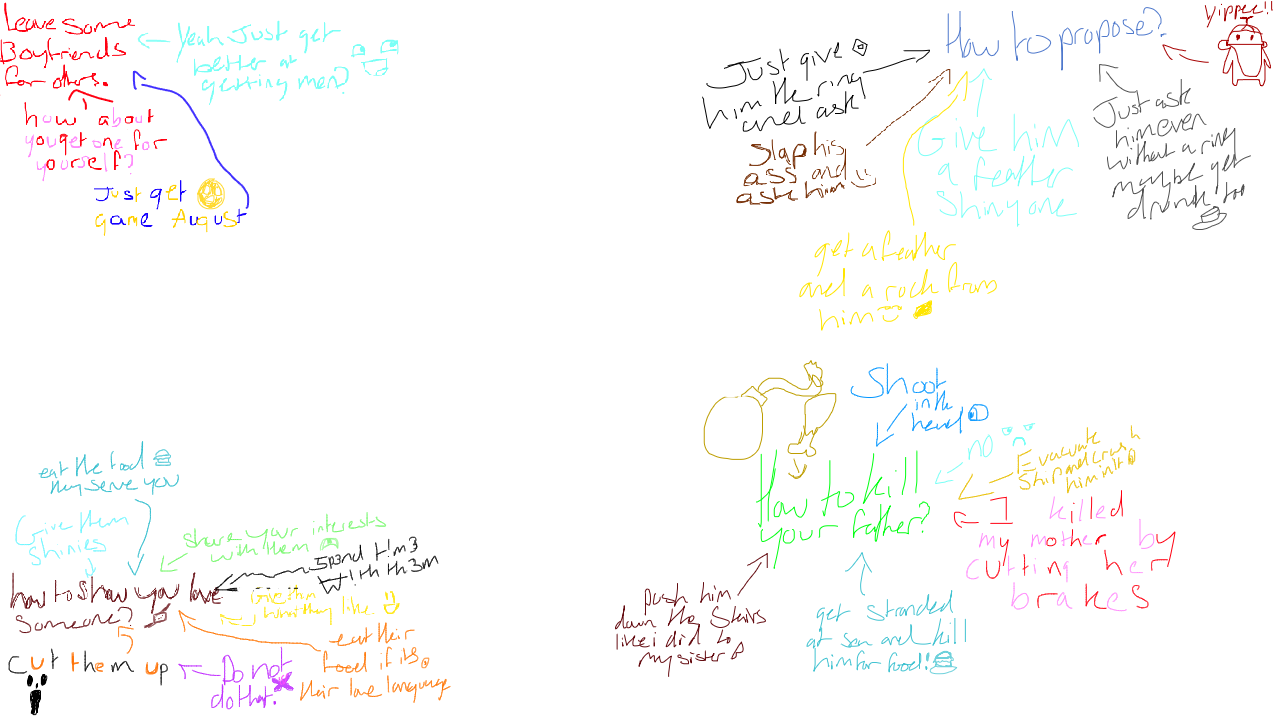 Leave some
Boyfriends
for others.
Yeah Just get
better at
getting men?
how about
you get one for
yourself?
Just get
game August
How to propose?
Yippee!!
Just give
him the ring
and ask
Slap his
ass and
ask him
Give him
a feather
shiny one
Just ask
him even
without a ring
maybe get
drunk too
get a feather
and a rock from
him
Shoot
in the
head
no
Evacuate
Ship and crash
him in it
How to kill
your father?
I killed
my mother by
cutting her
brakes
push him
down the stairs
like i did to
my sister
get stranded
at sea and kill
him for food!
eat the food
they serve you
Give them
shinies
share your interests
with them
Sp3nd t!m3
W!th th3m
how to show you love
someone?
Give them
they like
eat their
food if its
their love language
Cut them up
Do not
do that.